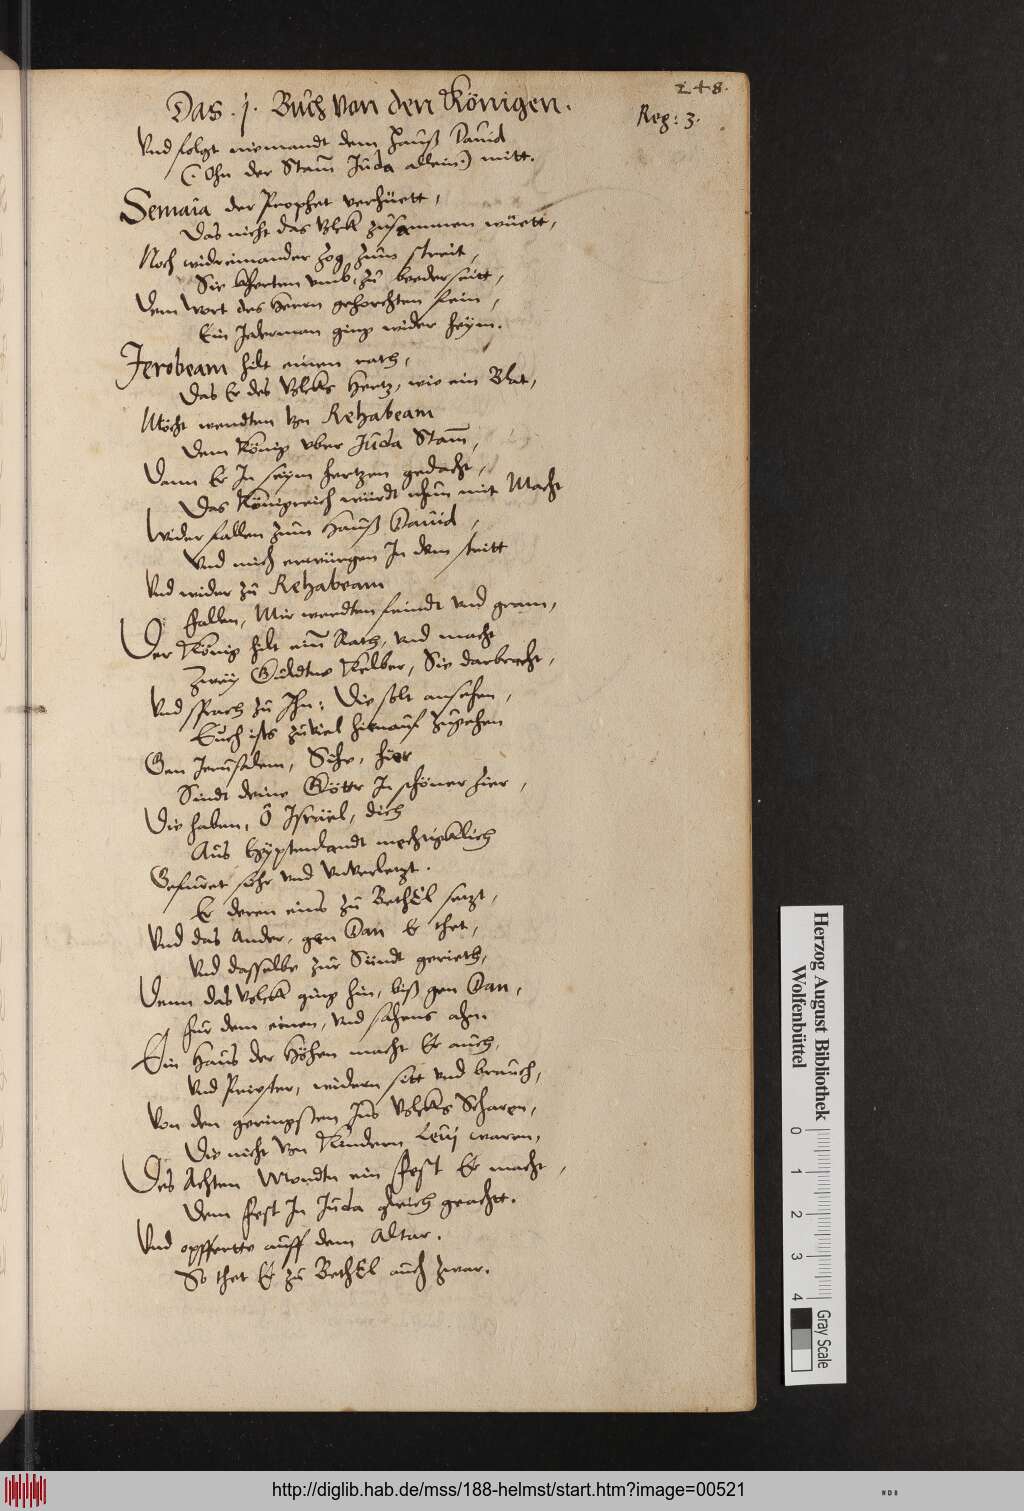 248.
Das .j. Buch von den Königen.
Reg: 3.
Vnd folgt niemandt dem Hauß Dauid
(: Ohn der Stam̄ Juda allein:) mitt.
Semaia der Prophet verhüett,
Das nicht das Volck zusammen wüett,
Noch widreinander zog zum streit,
Sie kherten vmb, zu beederseitt,
Dem Wort des Herrn gehorchten fein,
Ein Jederman ging wider heym.
Jerobeam hilt einen rath,
Das Er des Volcks Hertz, wie ein Blat,
Möcht wendten von Rehabeam
Dem König vber Juda Stam̄,
Dann Er In seym hertzen gedacht,
Das Königreich würdt nhun mit Macht
Wider fallen zum Hauß Dauid,
Vnd mich erwürgen In dem stritt
Vnd wider zu Rehabeam
fallen, Mir werdten feindt vnd gram,
Der König hilt ein̄ Rath, vnd macht
Zwey Güldtne Kelber, Sie darbracht,
Vnd sprach zu Ihn: Die solt ansehen,
Euch ists zuviel hienauf zugehen
Gen Jerusalem, Sihe, hier
Sindt deine Götter In schöner zier,
Die haben, O Israel, dich
Aus Egyptenlandt mechtigklich
Gefüret sehr vnd vnverletzt.
Er deren eins zu BethEl setzt,
Vnd das Ander, gen Dan Er thet,
Vnd dasselbe zur Sündt gerieth,
Denn das Volck ging hin, biß gen Dan,
für dem einen, vnd sahens ahn.
Ein Haus der Höhen macht Er auch,
Vnd Priester, widern sitt vnd brauch,
Von den geringsten Ins Volcks Scharen,
Die nicht von Kindern Levj waren,
Des Achten Mondtn ein fest Er macht,
Dem fest In Juda gleich geacht.
Vnd opfferte auff dem Altar.
So thet Er zu BethEl auch zwar.
Herzog August Bibliothek
Wolfenbüttel
0 1 2 3 4
Gray Scale
http://diglib.hab.de/mss/188-helmst/start.htm?image=00521